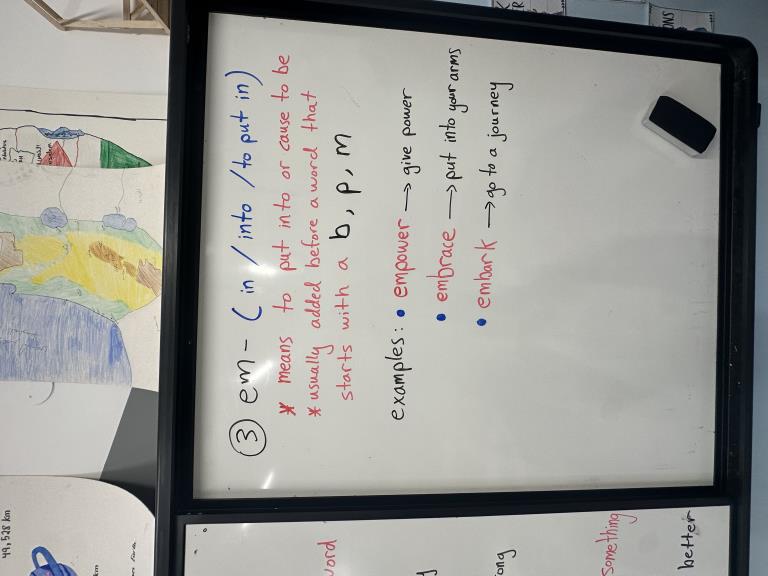 ③ em- ( in / into / to put in)
* means to put into or cause to be
* usually added before a word that
starts with a b, p, m
examples: • empower → give power
• embrace → put into your arms
• embark → go to a journey
something
better
49,528 km
km